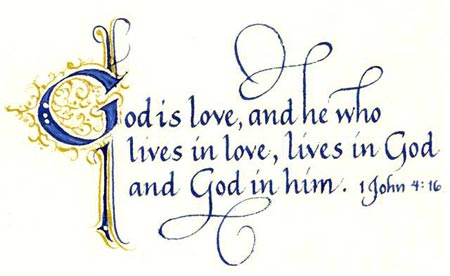 God is love, and he who
lives in love, lives in God
and God in him. 1 John 4:16